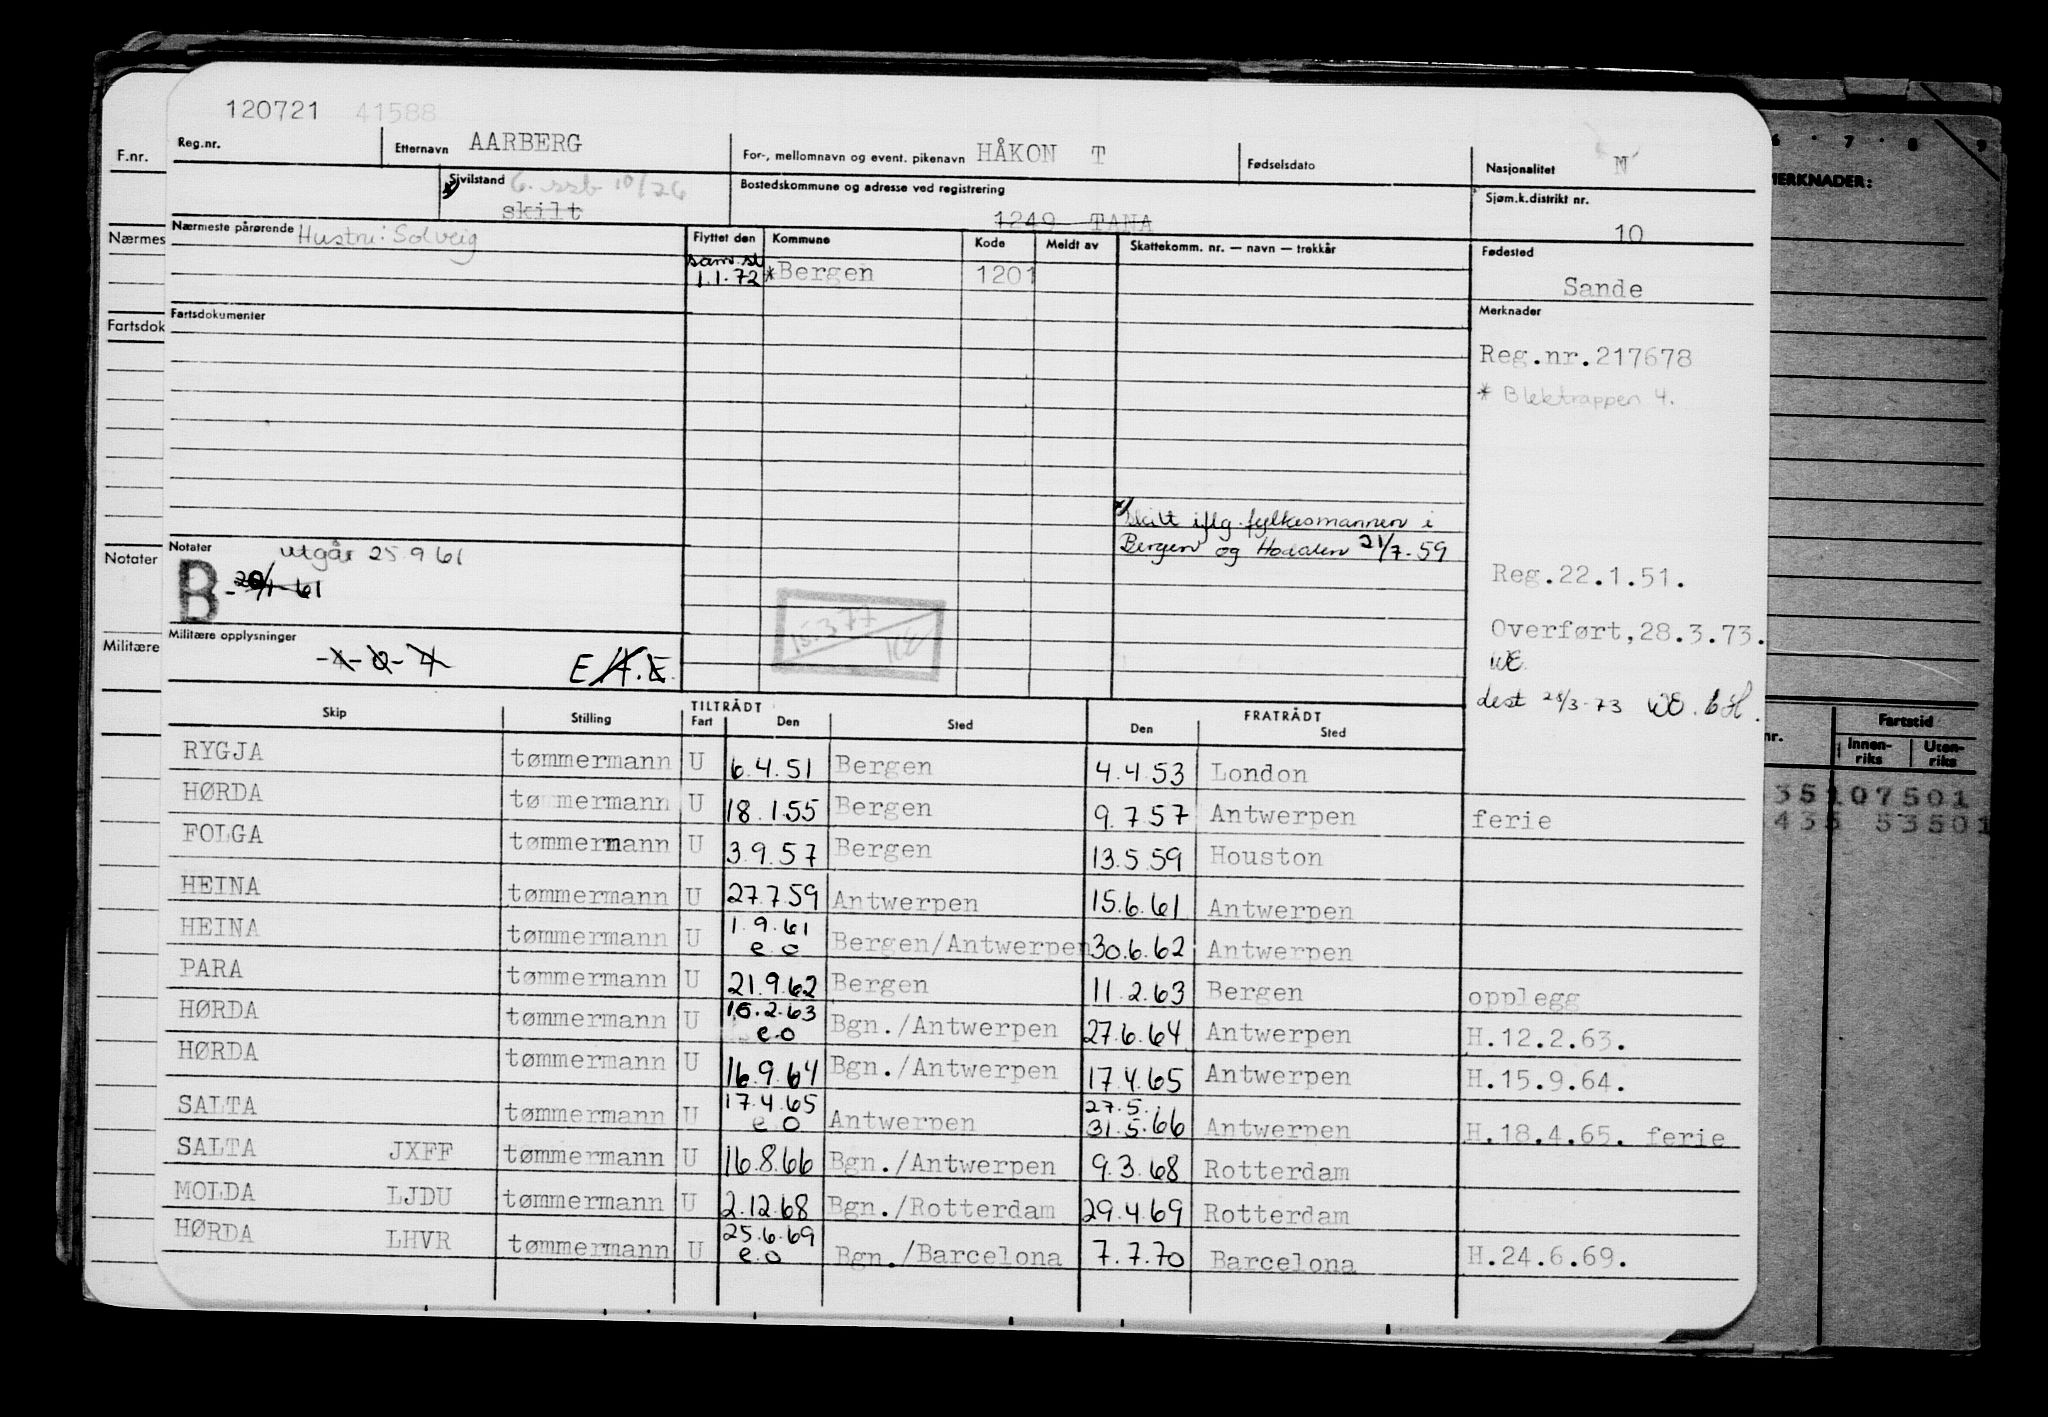 120721 41588
Reg.nr. Etternavn AARBERG For-, mellomnavn og event. pikenavn HÅKON T Fødselsdato Nasjonalitet N
F.nr.
Sivilstand G. ssb 10/76 Bostedskommune og adresse ved registrering Sjøm.k.distrikt nr.
skilt 1249 TANA 10
Nærmes Nærmeste pårørende Hustru: Solveig Flyttet den Kommune Kode Meldt av Skattekomm. nr. — navn — trekkår Fødested
sam. st
1.1.72 *Bergen 1201 Sande
Fartsdok Fartsdokumenter Merknader
Reg.nr.217678
* Blektrappen 4.
x) skilt iflg. fylkesmannen i
Bergen og Hordaland 21/7-59
Notater Notater utgår 25.9 61
B - 20/1-61
Reg.22.1.51.
15.3 77
Militære Militære opplysninger
E
Overført,28.3.73.
WE
dest 28/3-73 WE.
Skip Stilling TILTRÅDT Fart Den Sted FRATRÅDT Den Sted
RYGJA tømmermann U 6.4.51 Bergen 4.4.53 London
HØRDA tømmermann U 18.1.55 Bergen 9.7.57 Antwerpen ferie
FOLGA tømmermann U 3.9.57 Bergen 13.5.59 Houston
HEINA tømmermann U 27.7.59 Antwerpen 15.6.61 Antwerpen
HEINA tømmermann U 1.9.61 e.o Bergen/Antwerpen 30.6.62 Antwerpen
PARA tømmermann U 21.9.62 Bergen 11.2.63 Bergen opplegg
HØRDA tømmermann U 15.2.63 e.o Bgn./Antwerpen 27.6.64 Antwerpen H.12.2.63.
HØRDA tømmermann U 16.9.64 Bgn./Antwerpen 17.4.65 Antwerpen H.15.9.64.
SALTA tømmermann U 17.4.65 e.o Antwerpen 27.5. 31.5.66 Antwerpen H.18.4.65. ferie
SALTA JXFF tømmermann U 16.8.66 Bgn./Antwerpen 9.3.68 Rotterdam
MOLDA LJDU tømmermann U 2.12.68 Bgn./Rotterdam 29.4.69 Rotterdam
HØRDA LHVR tømmermann U 25.6.69 e.o Bgn./Barcelona 7.7.70 Barcelona H.24.6.69.
6 · 7 · 8 9
MERKNADER:
nr. Fartstid
Innen-riks Uten-riks
35107501
435 53501